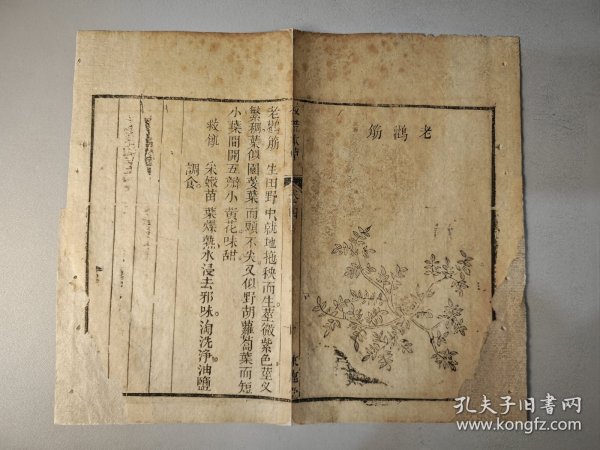 老鸛筋
救荒本草
卷四
老鸛筋 生田野中就地拖秧而生莖微紫色莖叉
繁稠葉似園荽葉而頭不尖又似野胡蘿蔔葉而短
小葉間開五瓣小黃花味甜
救飢 采嫩苗葉煠熟水浸去邪味淘洗淨油鹽
調食
孔夫子旧书网
www.kongfz.com